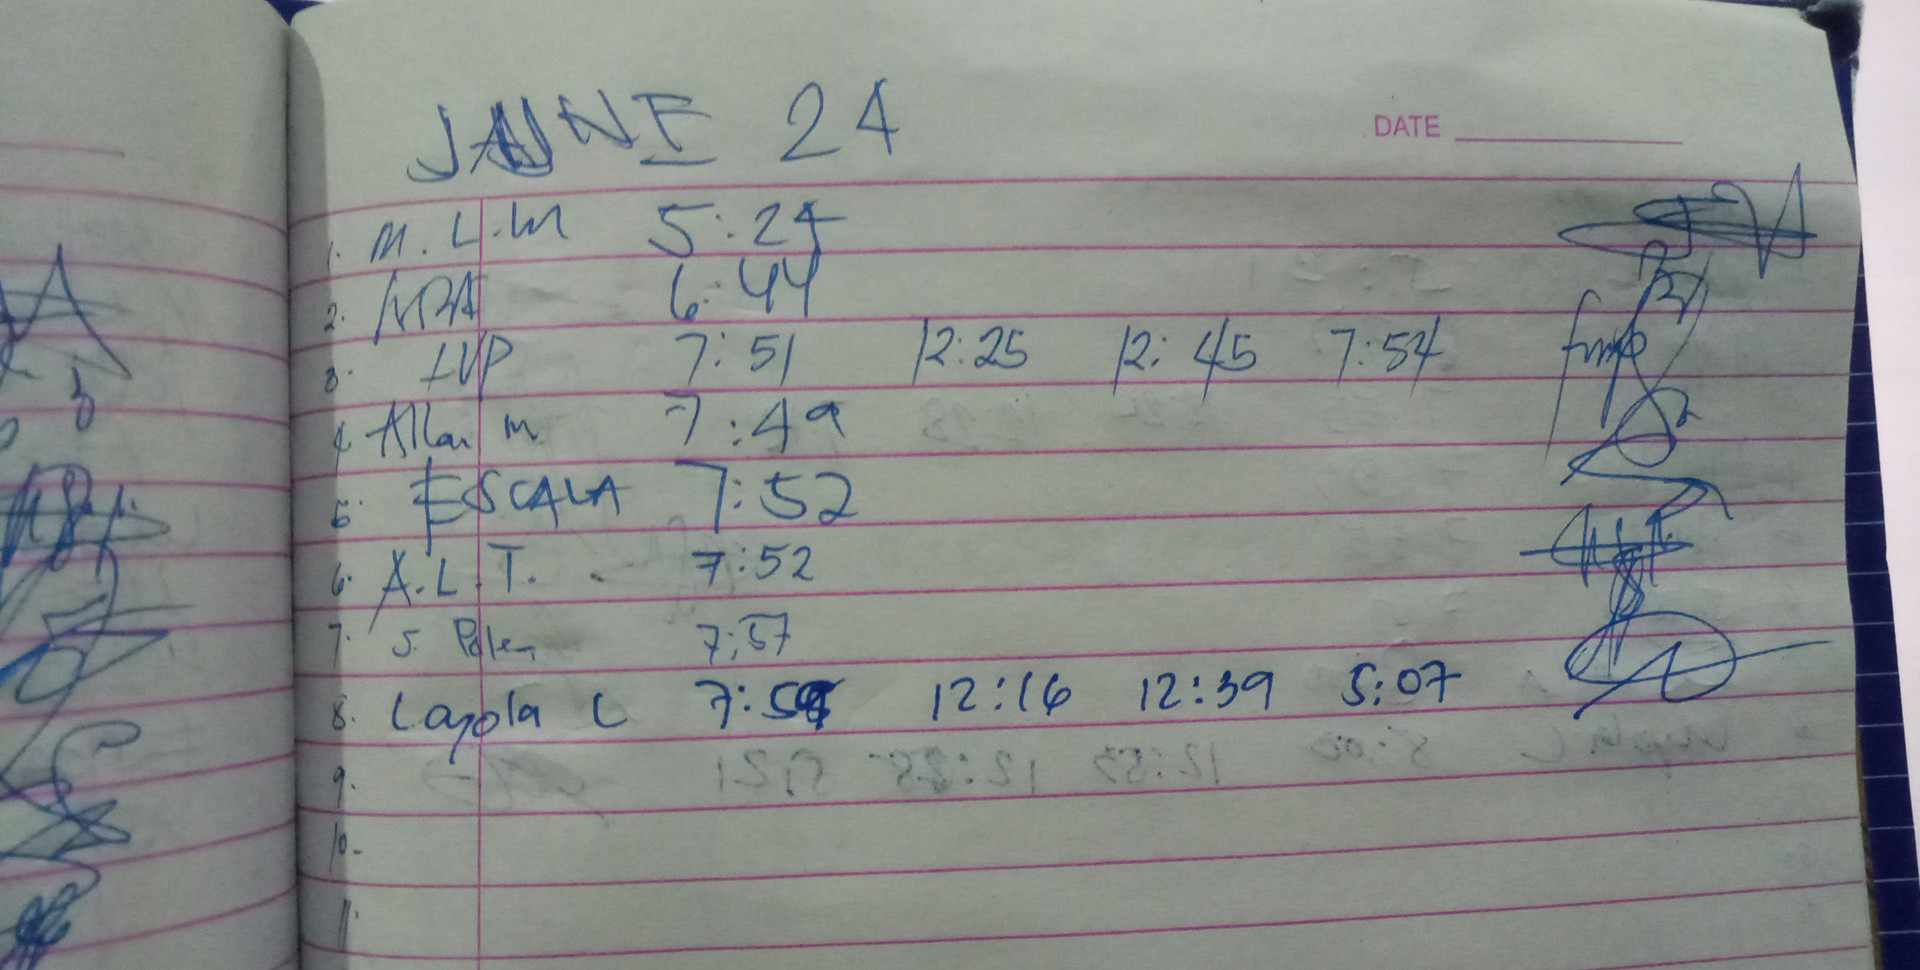 JUNE 24
DATE
1. M. L. M 5:24
2. NRA 6:44
3. LVP 7:51 12:25 12:45 7:54
4. Allan m 7:49
5. ESCALA 7:52
6. A.L.T. 7:52
7. J. 7:57
8. Layola L 7:58 12:16 12:39 5:07
9.
10.
11.